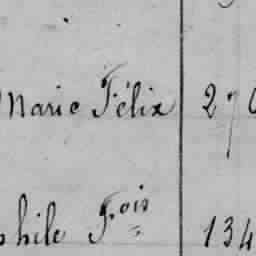 Marie Félix 270
phile Fois 134